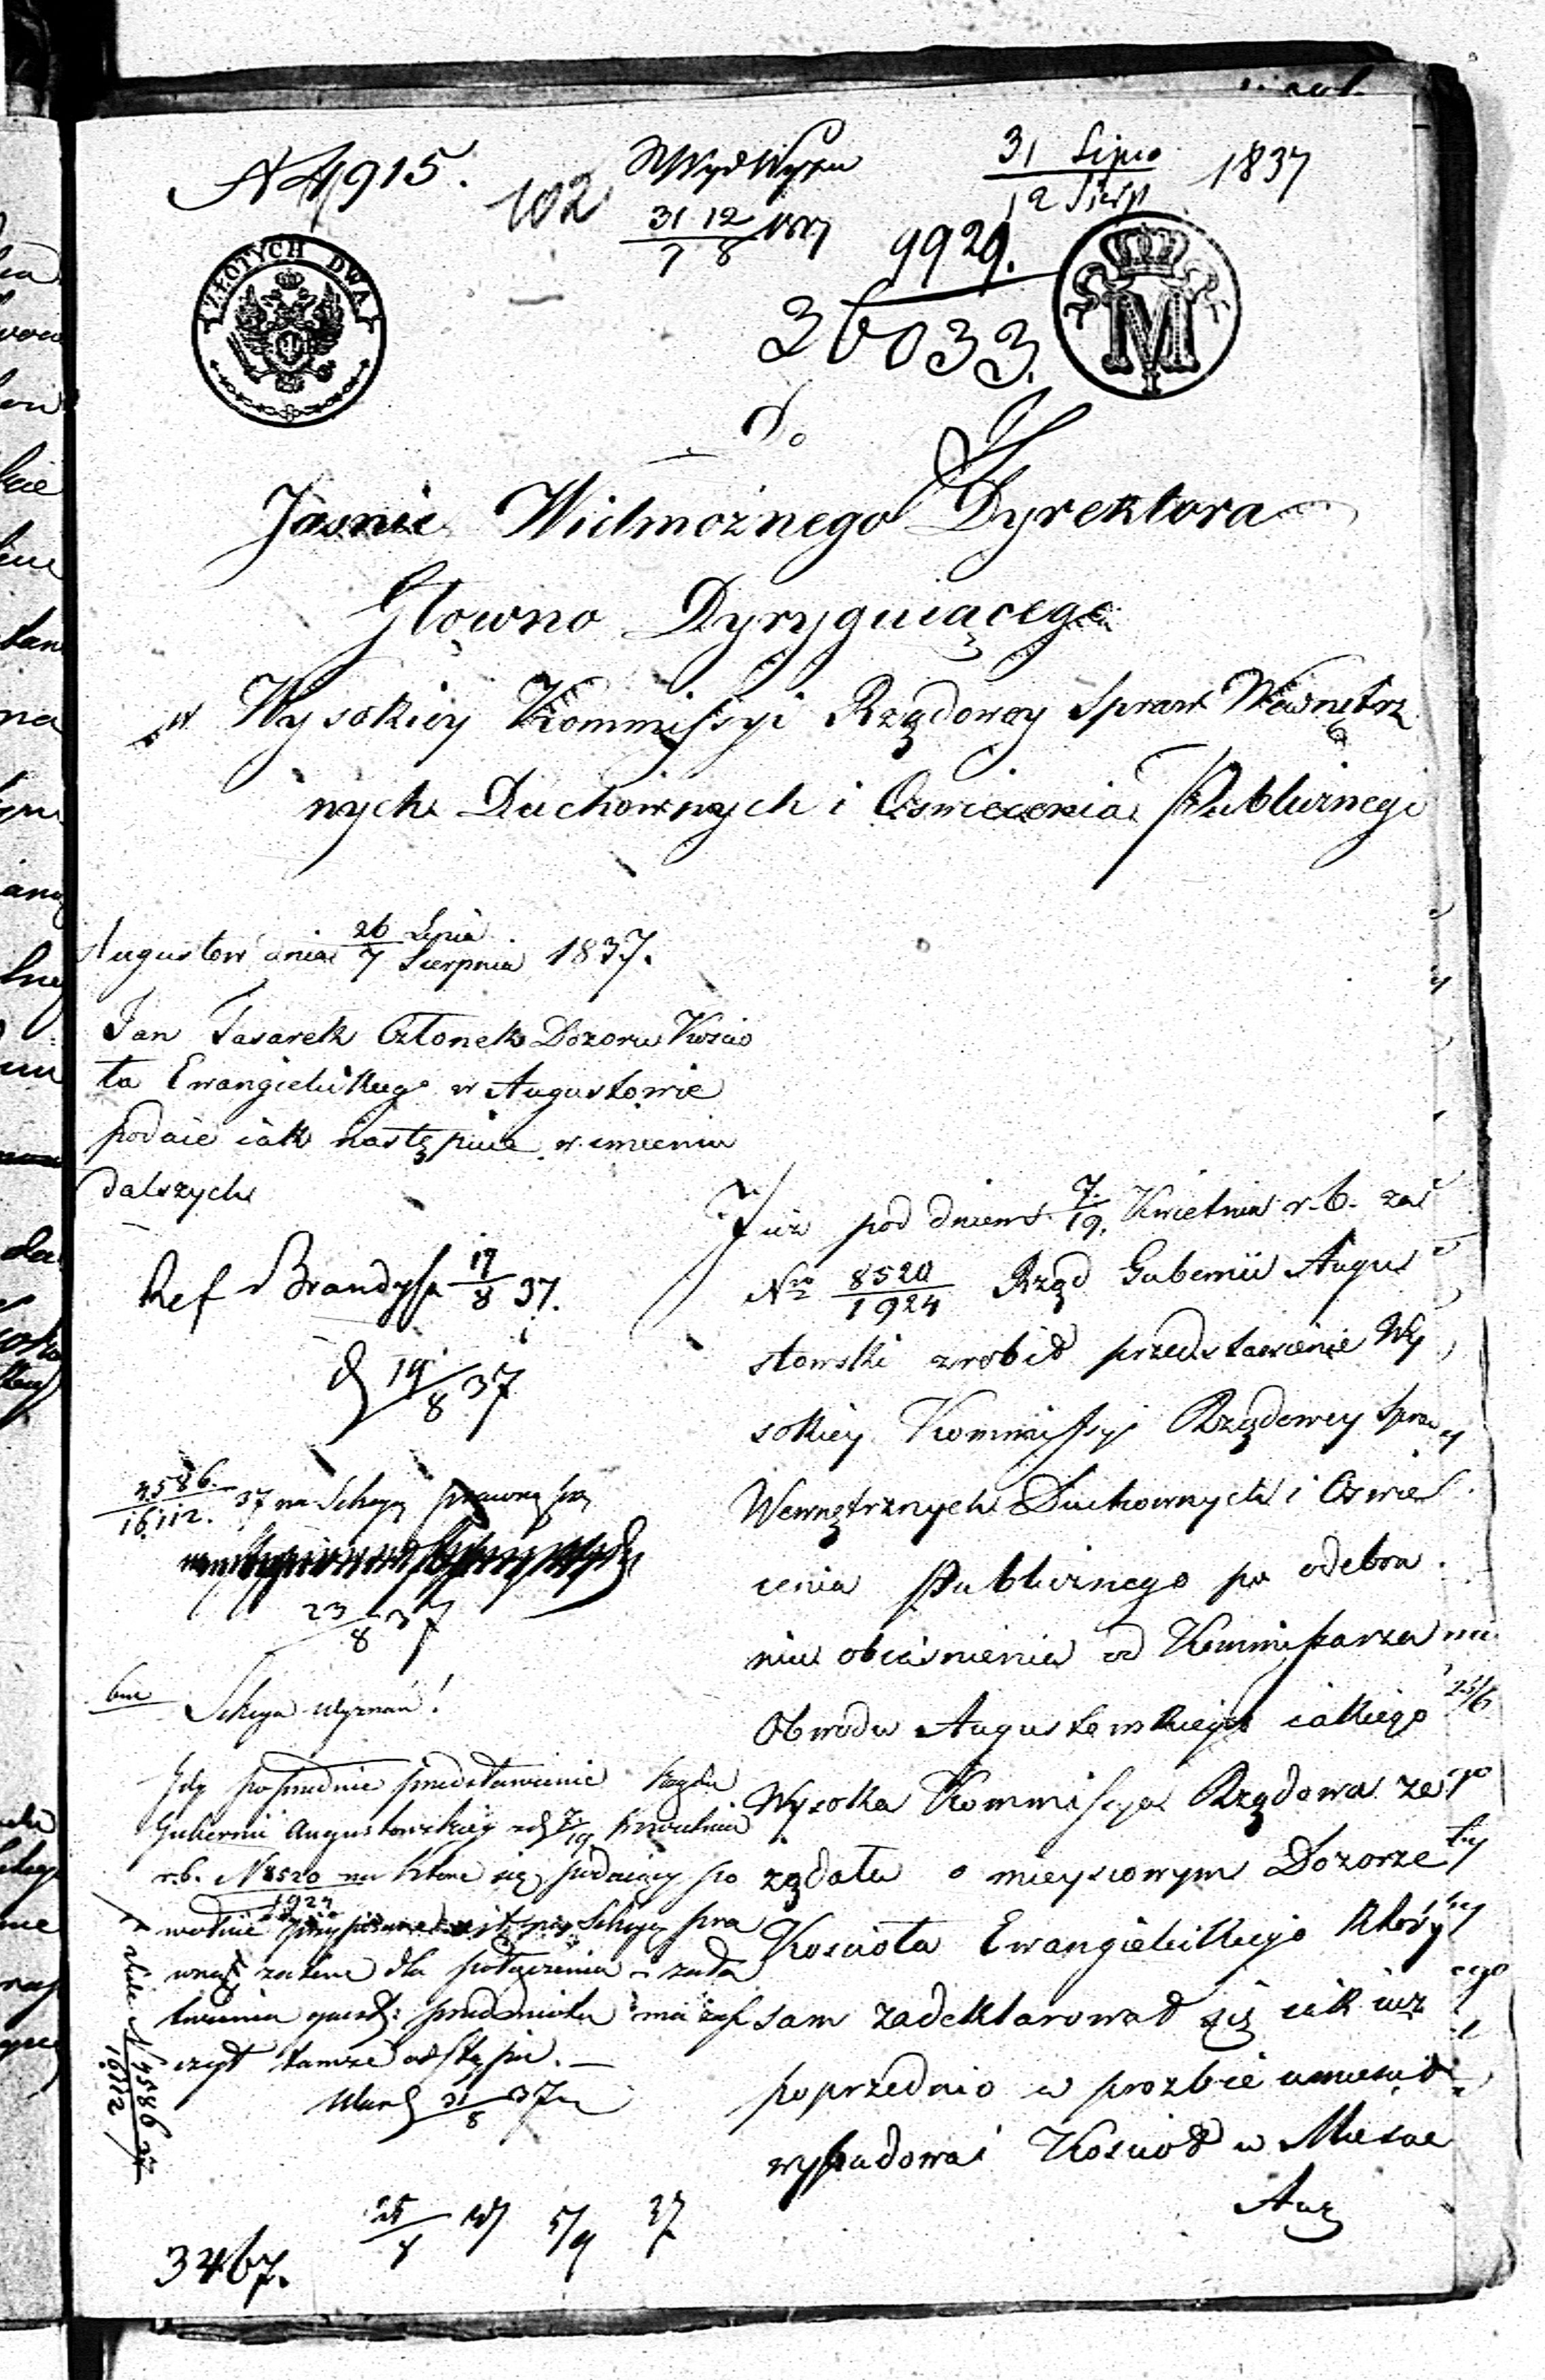 N 4915.
102
31 12
7 8 1837
31 Lipca
12 Sierp 1837
9929.
36033.
ZŁOTYCH DWA
M
Do
Jasnie Wielmożnego Dyrektora
Głowno Dyryguiącego
w Wysokiey Kommissyi Rządowey Spraw Wewnętrz
nych Duchownych i Oswiecenia Publicznego
Augustow dnia 26 Lipca
7 Sierpnia 1837.
Jan Tasarek Członek Dozoru Koscio
ła Ewangielickiego w Augustowie
podaie iak następuie w imieniu
dalszych
Ref Brandys 17/8 37.
19/8 37
4586.
16,112. 37 na Sekcyą prawną
23/8 37
Sekcya Wyznań!
Gdy poprzednie przedstawienie Rządu
Gubernii Augustowskiey z d 7/19 Kwietnia
r.b. N 8520
1924 na które się podaiący po
wołuie Sekcyą pra
wną zatem dla połączenia i zała
twienia przedmiotu ma
tamże odstąpić.
31/8 37
N 4586
16112
25/8 5/9 37
3467.
Już pod dniem 7/19. Kwietnia r.b. za
Nro 8520
1924 Rząd Gubernii Augu
stowski zrobił przedstawienie Wy
sokiey Kommissyi Rządowey Spraw
Wewnętrznych Duchownych i Oswie
cenia Publicznego po odebra
niu obiasnienia od Kommissarza
Obwodu Augustowskiego iakiego
Wysoka Kommissya Rządowa ze
żądała o mieyscowym Dozorze
Kościoła Ewangielickiego który
sam zadeklarował się iak iuż
poprzednio w prozbie umieścił
wybudować Kościoł w Miescie
Aug